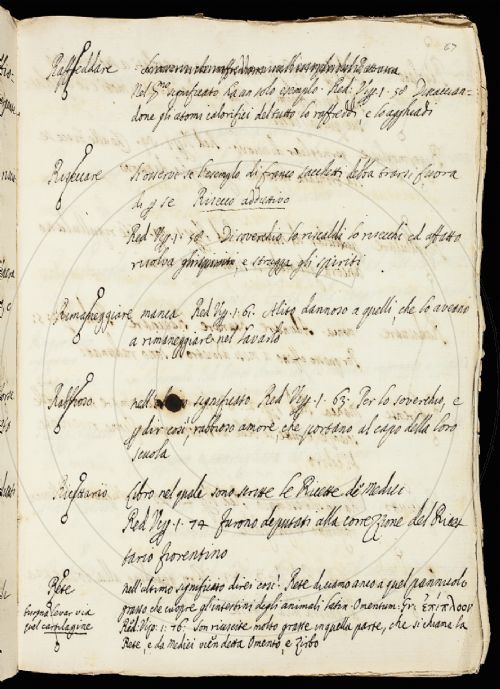 67
Raffreddare
Nel 3.° significato ha un solo esempio. Red. Vip. 1. 58. Discaccian-
done gli atomi calorifici del tutto lo raffreddi, e lo agghiadi
Riseccare Si osservi se l'esempio di franco Sacchetti debba trarsi fuora
Risecco addiettivo
Red. Vip. 1. 58. Di soverchio lo riscaldi, lo risecchi ed affatto
risolva, e strugga gli spiriti
Rimaneggiare manca Red. Vip. 1. 61. Alito dannoso a quelli, che lo aveano
a rimaneggiare nel lavarlo
Rabbioso nell' significato Red. Vip. 1. 63. Per lo soverchio, e
p dir così, rabbioso amore, che portano al capo della loro
scuola
Ricettario Libro nel quale sono scritte le Ricette de' Medici
Red. Vip. 1. 74. Furono deputati alla correzione del Ricet
tario fiorentino
Rete nell'ultimo significato direi così: Rete diciamo anco a quel pannicolo
grasso che cuopre gl'intestini degli animali latin. Omentum. Gr. ἐπίπλοον
leva, via
quel cartilagine
Red. Vip. 1. 76. Son riuscite molto grasse in quella parte, che si chiama la
Rete, e da Medici vien detta Omento, e Zirbo